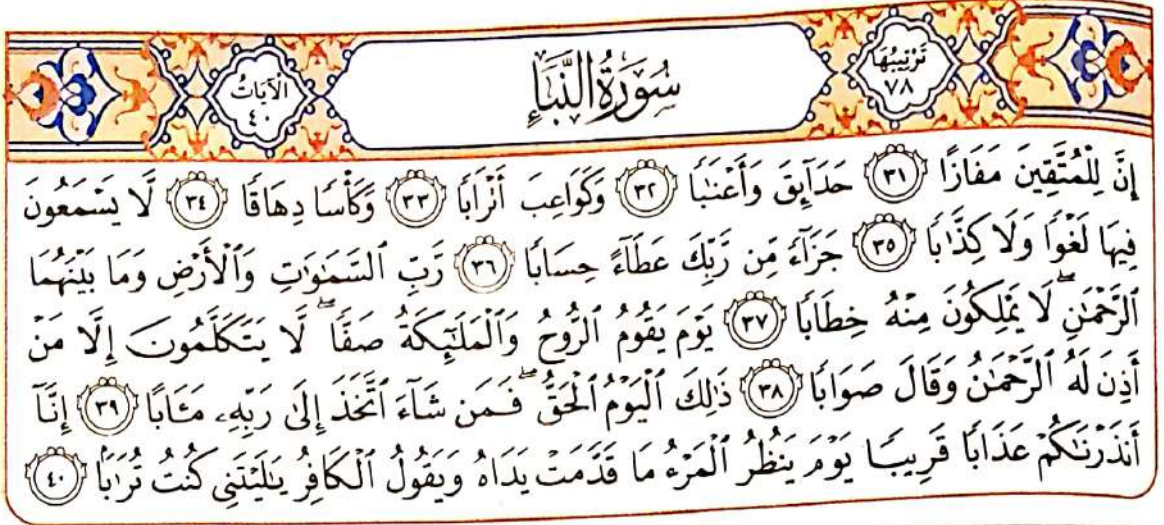 تَرْتِيبُهَا
٧٨
سُورَةُ النَّبَإِ
الْآيَاتُ
٤٠
إِنَّ لِلْمُتَّقِينَ مَفَازًا ٣١ حَدَآئِقَ وَأَعْنَٰبًا ٣٢ وَكَوَاعِبَ أَتْرَابًا ٣٣ وَكَأْسًا دِهَاقًا ٣٤ لَّا يَسْمَعُونَ
فِيهَا لَغْوًا وَلَا كِذَّٰبًا ٣٥ جَزَآءً مِّن رَّبِّكَ عَطَآءً حِسَابًا ٣٦ رَّبِّ ٱلسَّمَٰوَٰتِ وَٱلْأَرْضِ وَمَا بَيْنَهُمَا
ٱلرَّحْمَٰنِ ۖ لَا يَمْلِكُونَ مِنْهُ خِطَابًا ٣٧ يَوْمَ يَقُومُ ٱلرُّوحُ وَٱلْمَلَٰٓئِكَةُ صَفًّا ۖ لَّا يَتَكَلَّمُونَ إِلَّا مَنْ
أَذِنَ لَهُ ٱلرَّحْمَٰنُ وَقَالَ صَوَابًا ٣٨ ذَٰلِكَ ٱلْيَوْمُ ٱلْحَقُّ ۖ فَمَن شَآءَ ٱتَّخَذَ إِلَىٰ رَبِّهِۦ مَـَٔابًا ٣٩ إِنَّآ
أَنذَرْنَٰكُمْ عَذَابًا قَرِيبًا يَوْمَ يَنظُرُ ٱلْمَرْءُ مَا قَدَّمَتْ يَدَاهُ وَيَقُولُ ٱلْكَافِرُ يَٰلَيْتَنِى كُنتُ تُرَٰبًۢا ٤٠